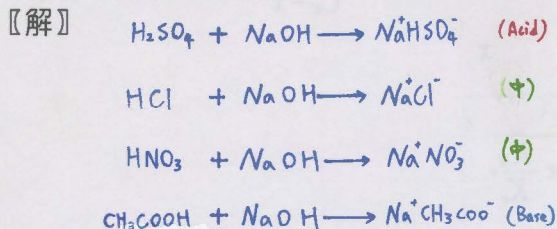 〖解〗 H₂SO₄ + NaOH ⟶ Na⁺HSO₄⁻ (Acid)
HCl + NaOH ⟶ Na⁺Cl⁻ (中)
HNO₃ + NaOH ⟶ Na⁺NO₃⁻ (中)
CH₃COOH + NaOH ⟶ Na⁺CH₃COO⁻ (Base)